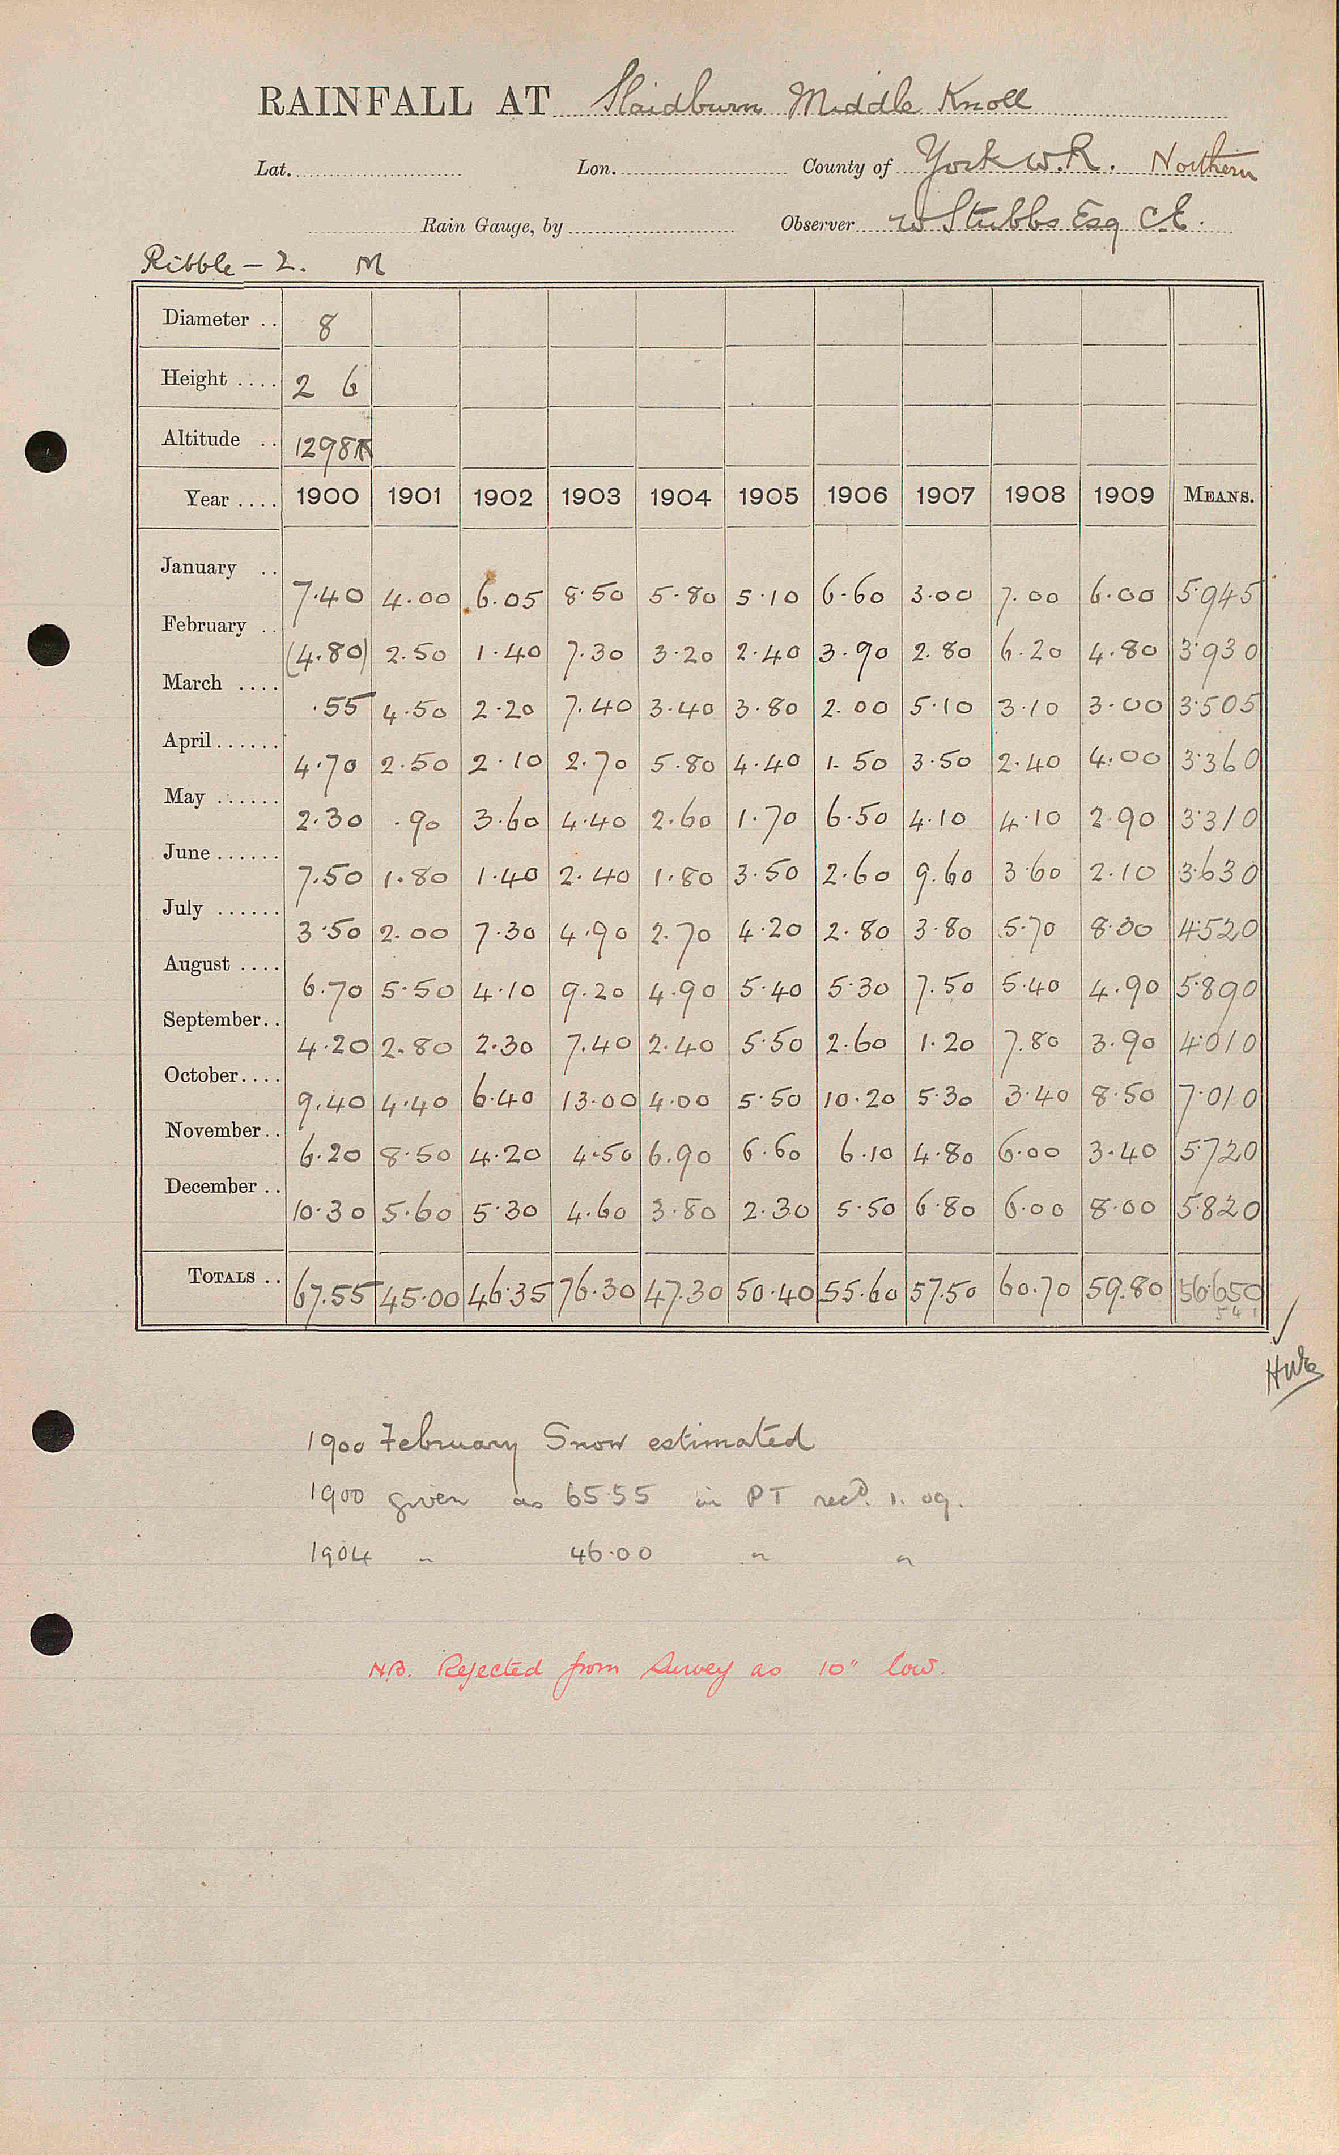 RAINFALL AT Slaidburn Middle Knoll
Lat. Lon. County of York W.R. Northern
Rain Gauge, by Observer W Stubbs Esq C.E.
Ribble - 2. M
Diameter .. 8
Height .... 2 6
Altitude .. 1298
Year .... 1900 1901 1902 1903 1904 1905 1906 1907 1908 1909 MEANS.
January .. 7.40 4.00 6.05 8.50 5.80 5.10 6.60 3.00 7.00 6.00 5.945
February .. (4.80) 2.50 1.40 7.30 3.20 2.40 3.90 2.80 6.20 4.80 3.930
March .... .55 4.50 2.20 7.40 3.40 3.80 2.00 5.10 3.10 3.00 3.505
April...... 4.70 2.50 2.10 2.70 5.80 4.40 1.50 3.50 2.40 4.00 3.360
May ...... 2.30 .90 3.60 4.40 2.60 1.70 6.50 4.10 4.10 2.90 3.310
June...... 7.50 1.80 1.40 2.40 1.80 3.50 2.60 9.60 3.60 2.10 3.630
July ...... 3.50 2.00 7.30 4.90 2.70 4.20 2.80 3.80 5.70 8.30 4.520
August .... 6.70 5.50 4.10 9.20 4.90 5.40 5.30 7.50 5.40 4.90 5.890
September.. 4.20 2.80 2.30 7.40 2.40 5.50 2.60 1.20 7.80 3.90 4.010
October.... 9.40 4.40 6.40 13.00 4.00 5.50 10.20 5.30 3.40 8.50 7.010
November.. 6.20 8.50 4.20 4.50 6.90 6.60 6.10 4.80 6.00 3.40 5.720
December .. 10.30 5.60 5.30 4.60 3.80 2.30 5.50 6.80 6.00 8.00 5.820
TOTALS .. 67.55 45.00 46.35 76.30 47.30 50.40 55.60 57.50 60.70 59.80 56.650
541
1900 February Snow estimated
1900 given as 65.55 in PT recd. 1. 09.
1904 " 46.00 " "
N.B. Rejected from Survey as 10" low.